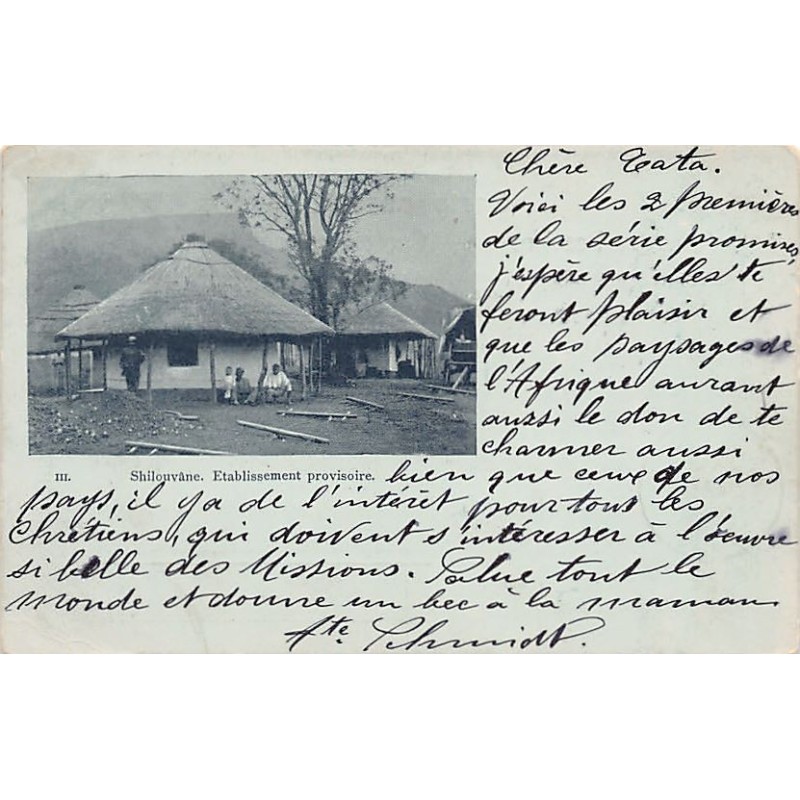 Chère Tata.
Voici les 2 premières
de la série promises,
j'espère qu'elles te
feront plaisir et
que les paysages de
l'Afrique auront
aussi le don de te
charmer aussi
III. Shilouvâne. Etablissement provisoire.
bien que ceux de nos
pays, il y a de l'intérêt pour tous les
Chrétiens, qui doivent s'intéresser à l'oeuvre
si belle des Missions. Salue tout le
monde et donne un bec à la maman.
Ate Schmidt.